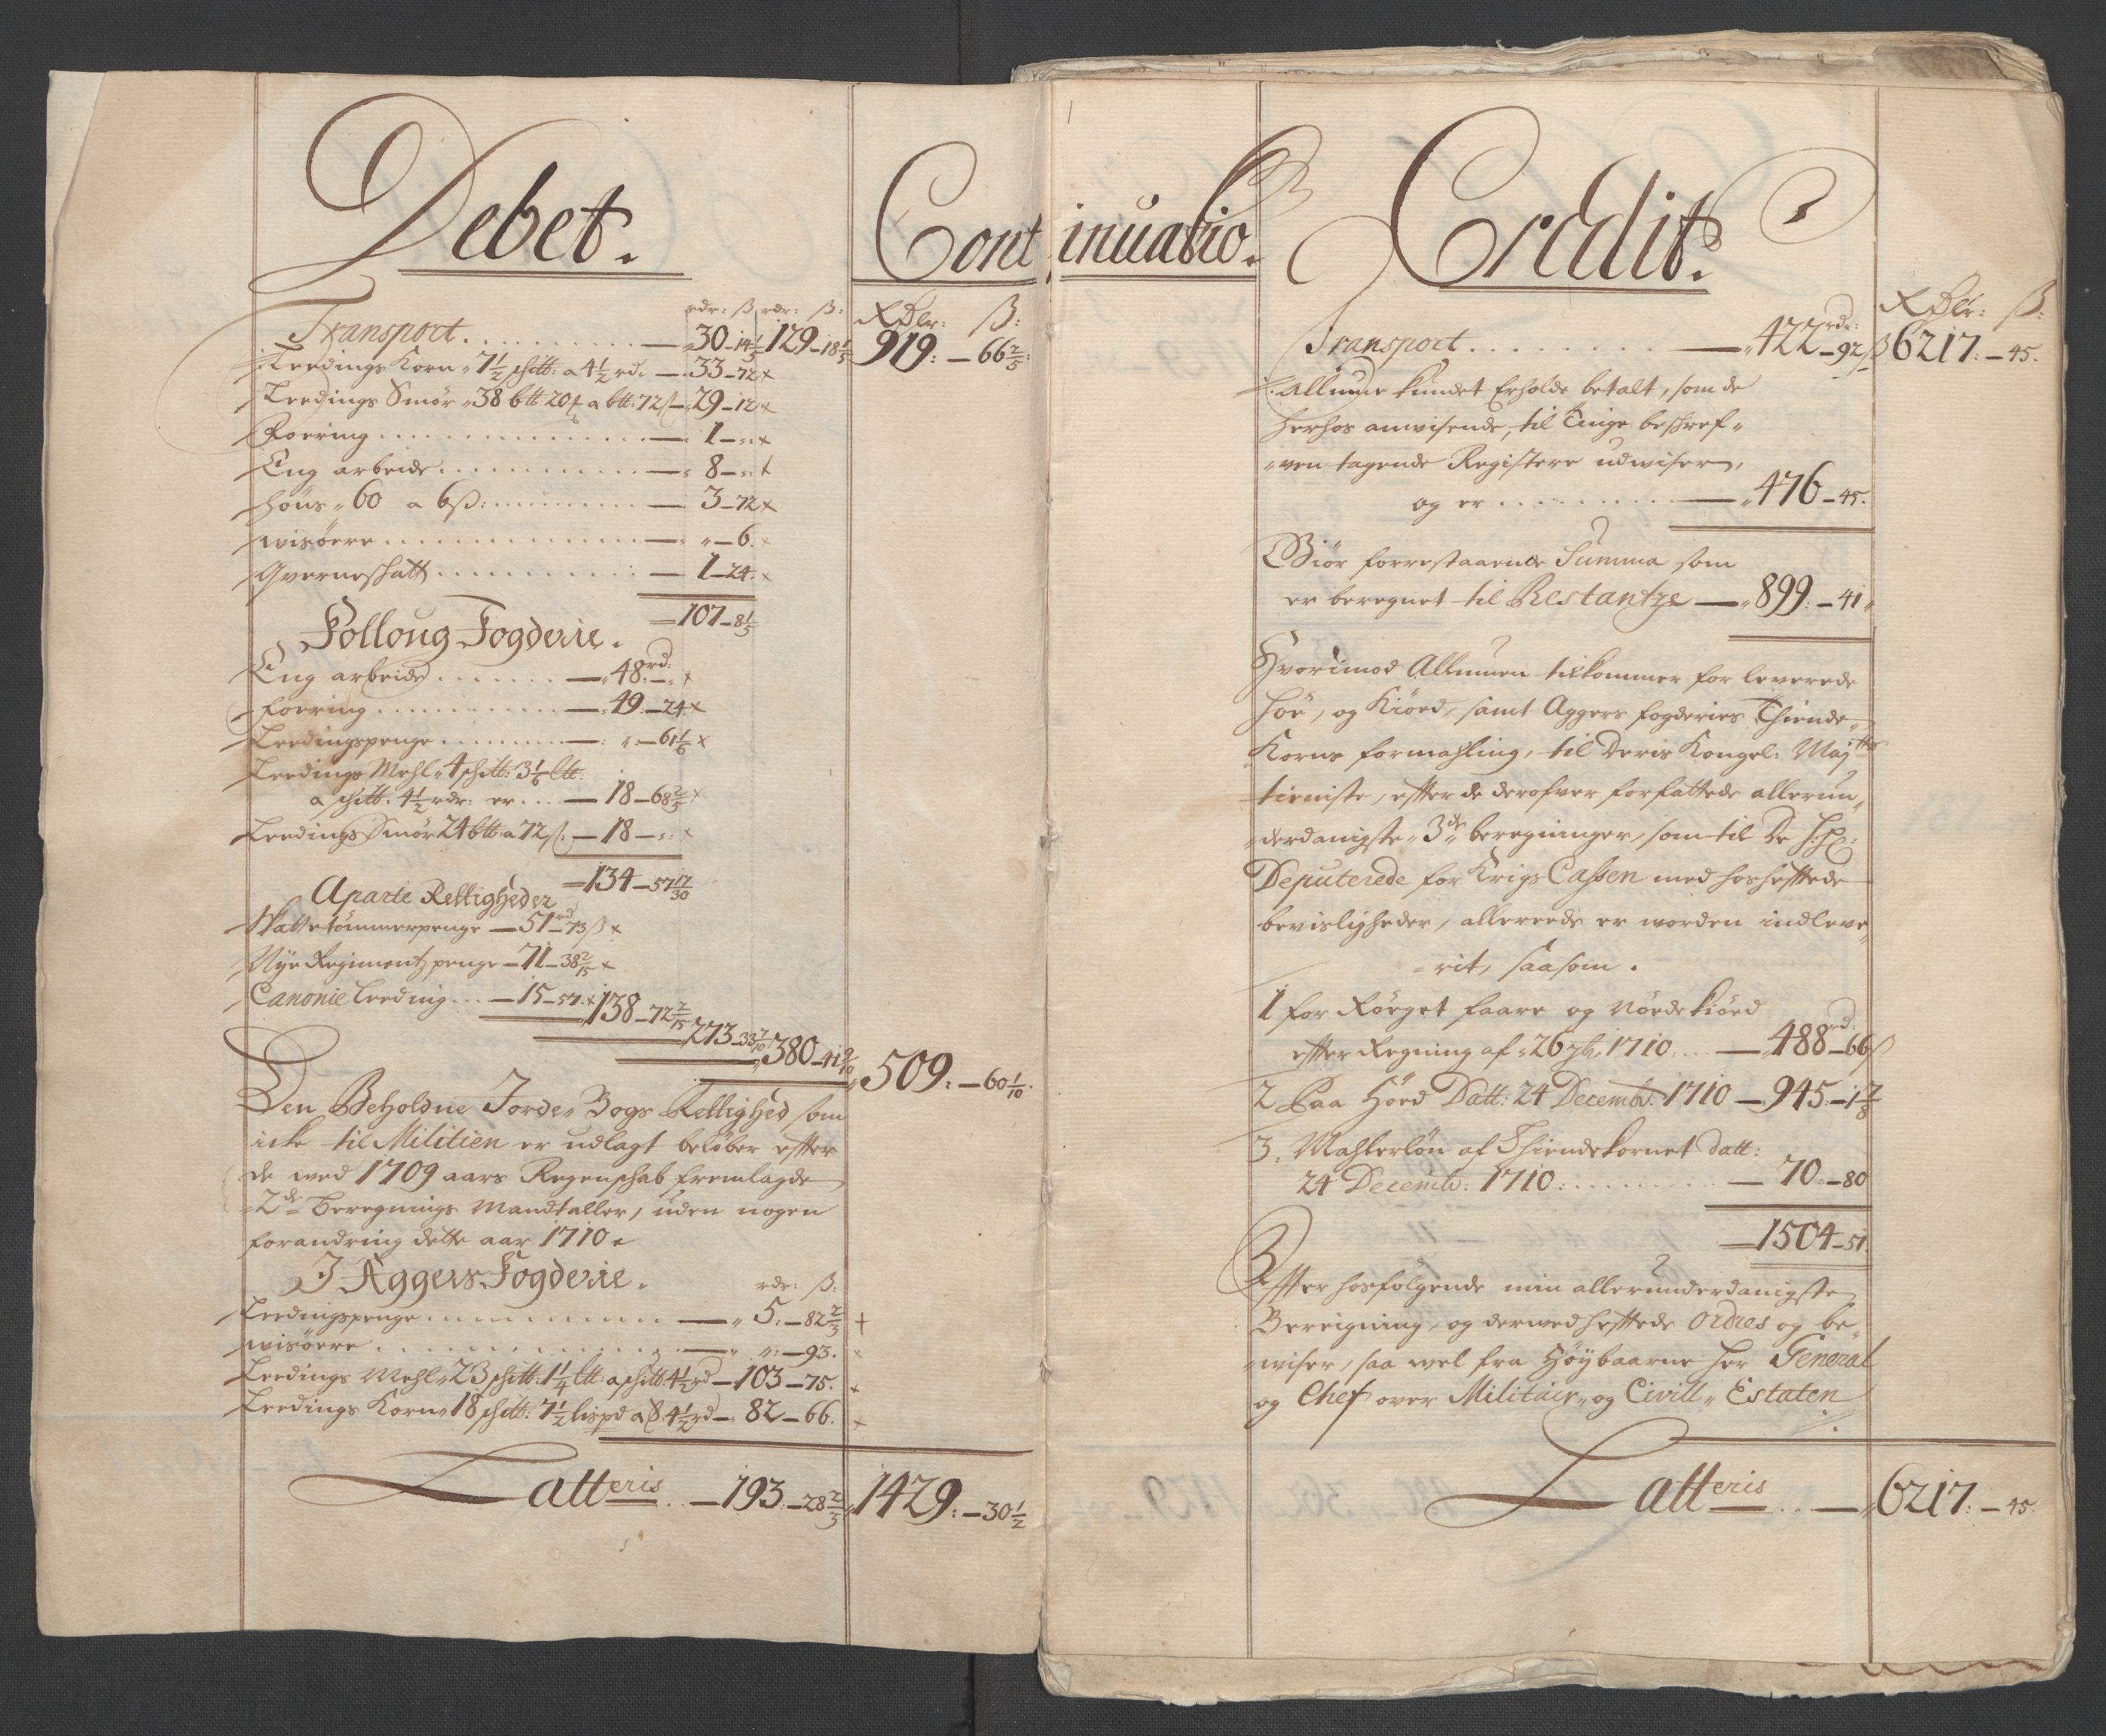 Debet.
Continuatio.
Credit.
rdr: ß rdr: ß:
RDlr: ß:
Transport. . . . . . . . . . — 30 - 14 1/5 129 - 18 1/5 919: - 66 2/5:
Leedings Korn „ 7 1/2 schtt: a 4 1/2 rd: — 33 - 72 x
Leedings Smör „ 38 btt 20 a btt: 72 ß — 29 - 12 x
Foering . . . . . . . . . . . . — 1 - „: x
Eng arbeide . . . . . . . . . . — 8 - „: x
höns „ 60 a 6 ß: . . . . . . . . . — 3 - 72 x
wisöere . . . . . . . . . . . . — „ - 6. x
Qverneskatt . . . . . . . . . . — 1 - 24. x
= 107 - 8 1/5
Folloug Fogderie.
Eng arbeide . . . . . . — 48 rd: - „: x
foering . . . . . . . . . . — 49 - 24 x
Leedingspenge . . . . . . . . — „ - 61 1/6 x
Leedings Mehl „ 4 schtt: 3 1/6 ltt:
a schtt. 4 1/2 rdr: er . . . — 18 - 68 2/5 x
Leedings Smör 24 btt a 72 ß. — 18 - „: x
= 134 - 57 17/30
Aparte Rettigheder
Skattetömmerpenge — 51 rd - 73 ß x
Nye Regimentz penge — 71 - 38 2/15 x
Canonie Leeding . . . — 15 - 57. x 138 - 72 2/15
273 - 33 7/10 380 - 41 9/10 509: - 60 1/10.
Den Beholdne Jorde-Bogs Rettighed som
icke til Militien er udlagt beløber efter
de med 1709 aars Regenschab fremlagde
2de Beregnings Mandtaller, uden nogen
forandring dette aar 1710.
I Aggers Fogderie.
rdr: ß:
Leedingspenge . . . . . . . . . . — „ 5: - 82 2/3 x
wisöere . . . . . . . . . . . — „: - 93. x
Leedings Mehl „ 23 schtt: 1 1/4 ltt: a schtt 4 1/2 rd — 103 - 75. x
Leedings Korn „ 18 schtt: 7 1/2 lispd a ß 4 1/2 rd — 82 - 66. x
Latteris . . — 193: - 28 2/3 1429: - 30 1/2
RDlr: ß:
Transport. . . . . . . — „ 422 rdr: - 92 ß 6217: - 45.
Allmue kundet Erholde betalt, som de
herhos anvisende, til Tinge beskref-
-ven tagende Registere udwiser,
og er . . . . . . . . . — „ 476 - 45.
Giör forrestaaende Summa som
er beregnet til Restantze — „ 899: - 41 „
Hvorimod Allmuen tilkommer for leverede
höe, og Kiörd, samt Aggers fogderies Thiende-
Korns formahling, til Deris Kongel: Maj:tts
tieniste, efter de derofver forfattede allerun-
-derdanigste „ 3de beregninger, som til De H:H:
Deputerede for Krigs Cassen med hoshefftede
bevisligheder, allerede er worden indleve-
-rit, saasom.
1 for Røeget faare og Nødekiørd
efter Regning af „ 26 7br 1710 . . — „ 488 rd: - 66 ß
2 Paa Høed Datt: 24 Decembr: 1710 — 945: - 1 7/8
3. Mahlerløn af Thiendekornet Datt:
24 Decembr: 1710: . . . . . . . — 70: - 80
— 1504 - 51.
Effter hosfølgende min allerunderdanigste
Bereigning, og dermed hefftede Ordres og be-
-wiser, saa wel fra Höybaarne her General
og Chef over Militair- og Civill- Estaten
Latteris . . — „ 6217: - 45.